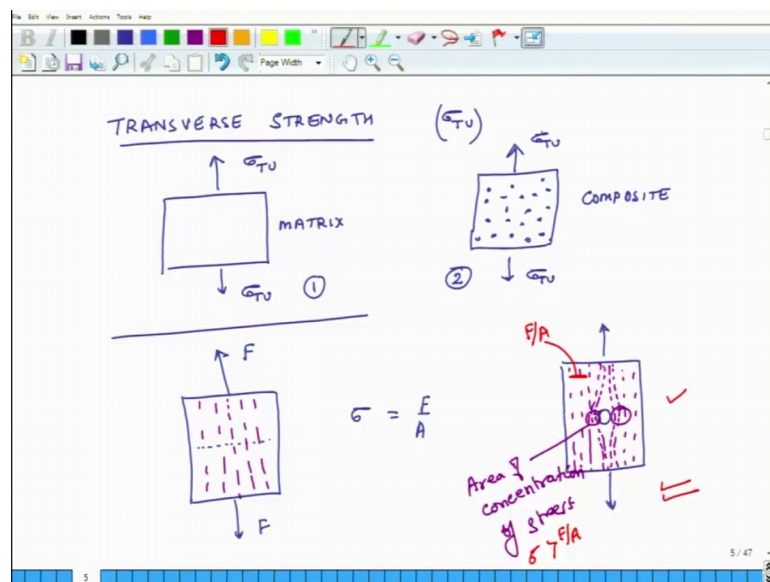 File Edit View Insert Actions Tools Help
B I
Page Width
TRANSVERSE STRENGTH (σTU)
σTU
MATRIX
σTU
①
σTU
COMPOSITE
②
σTU
F
σ = F/A
F
F/A
Area of
concentration
of stress
σ > F/A
5 / 47
5